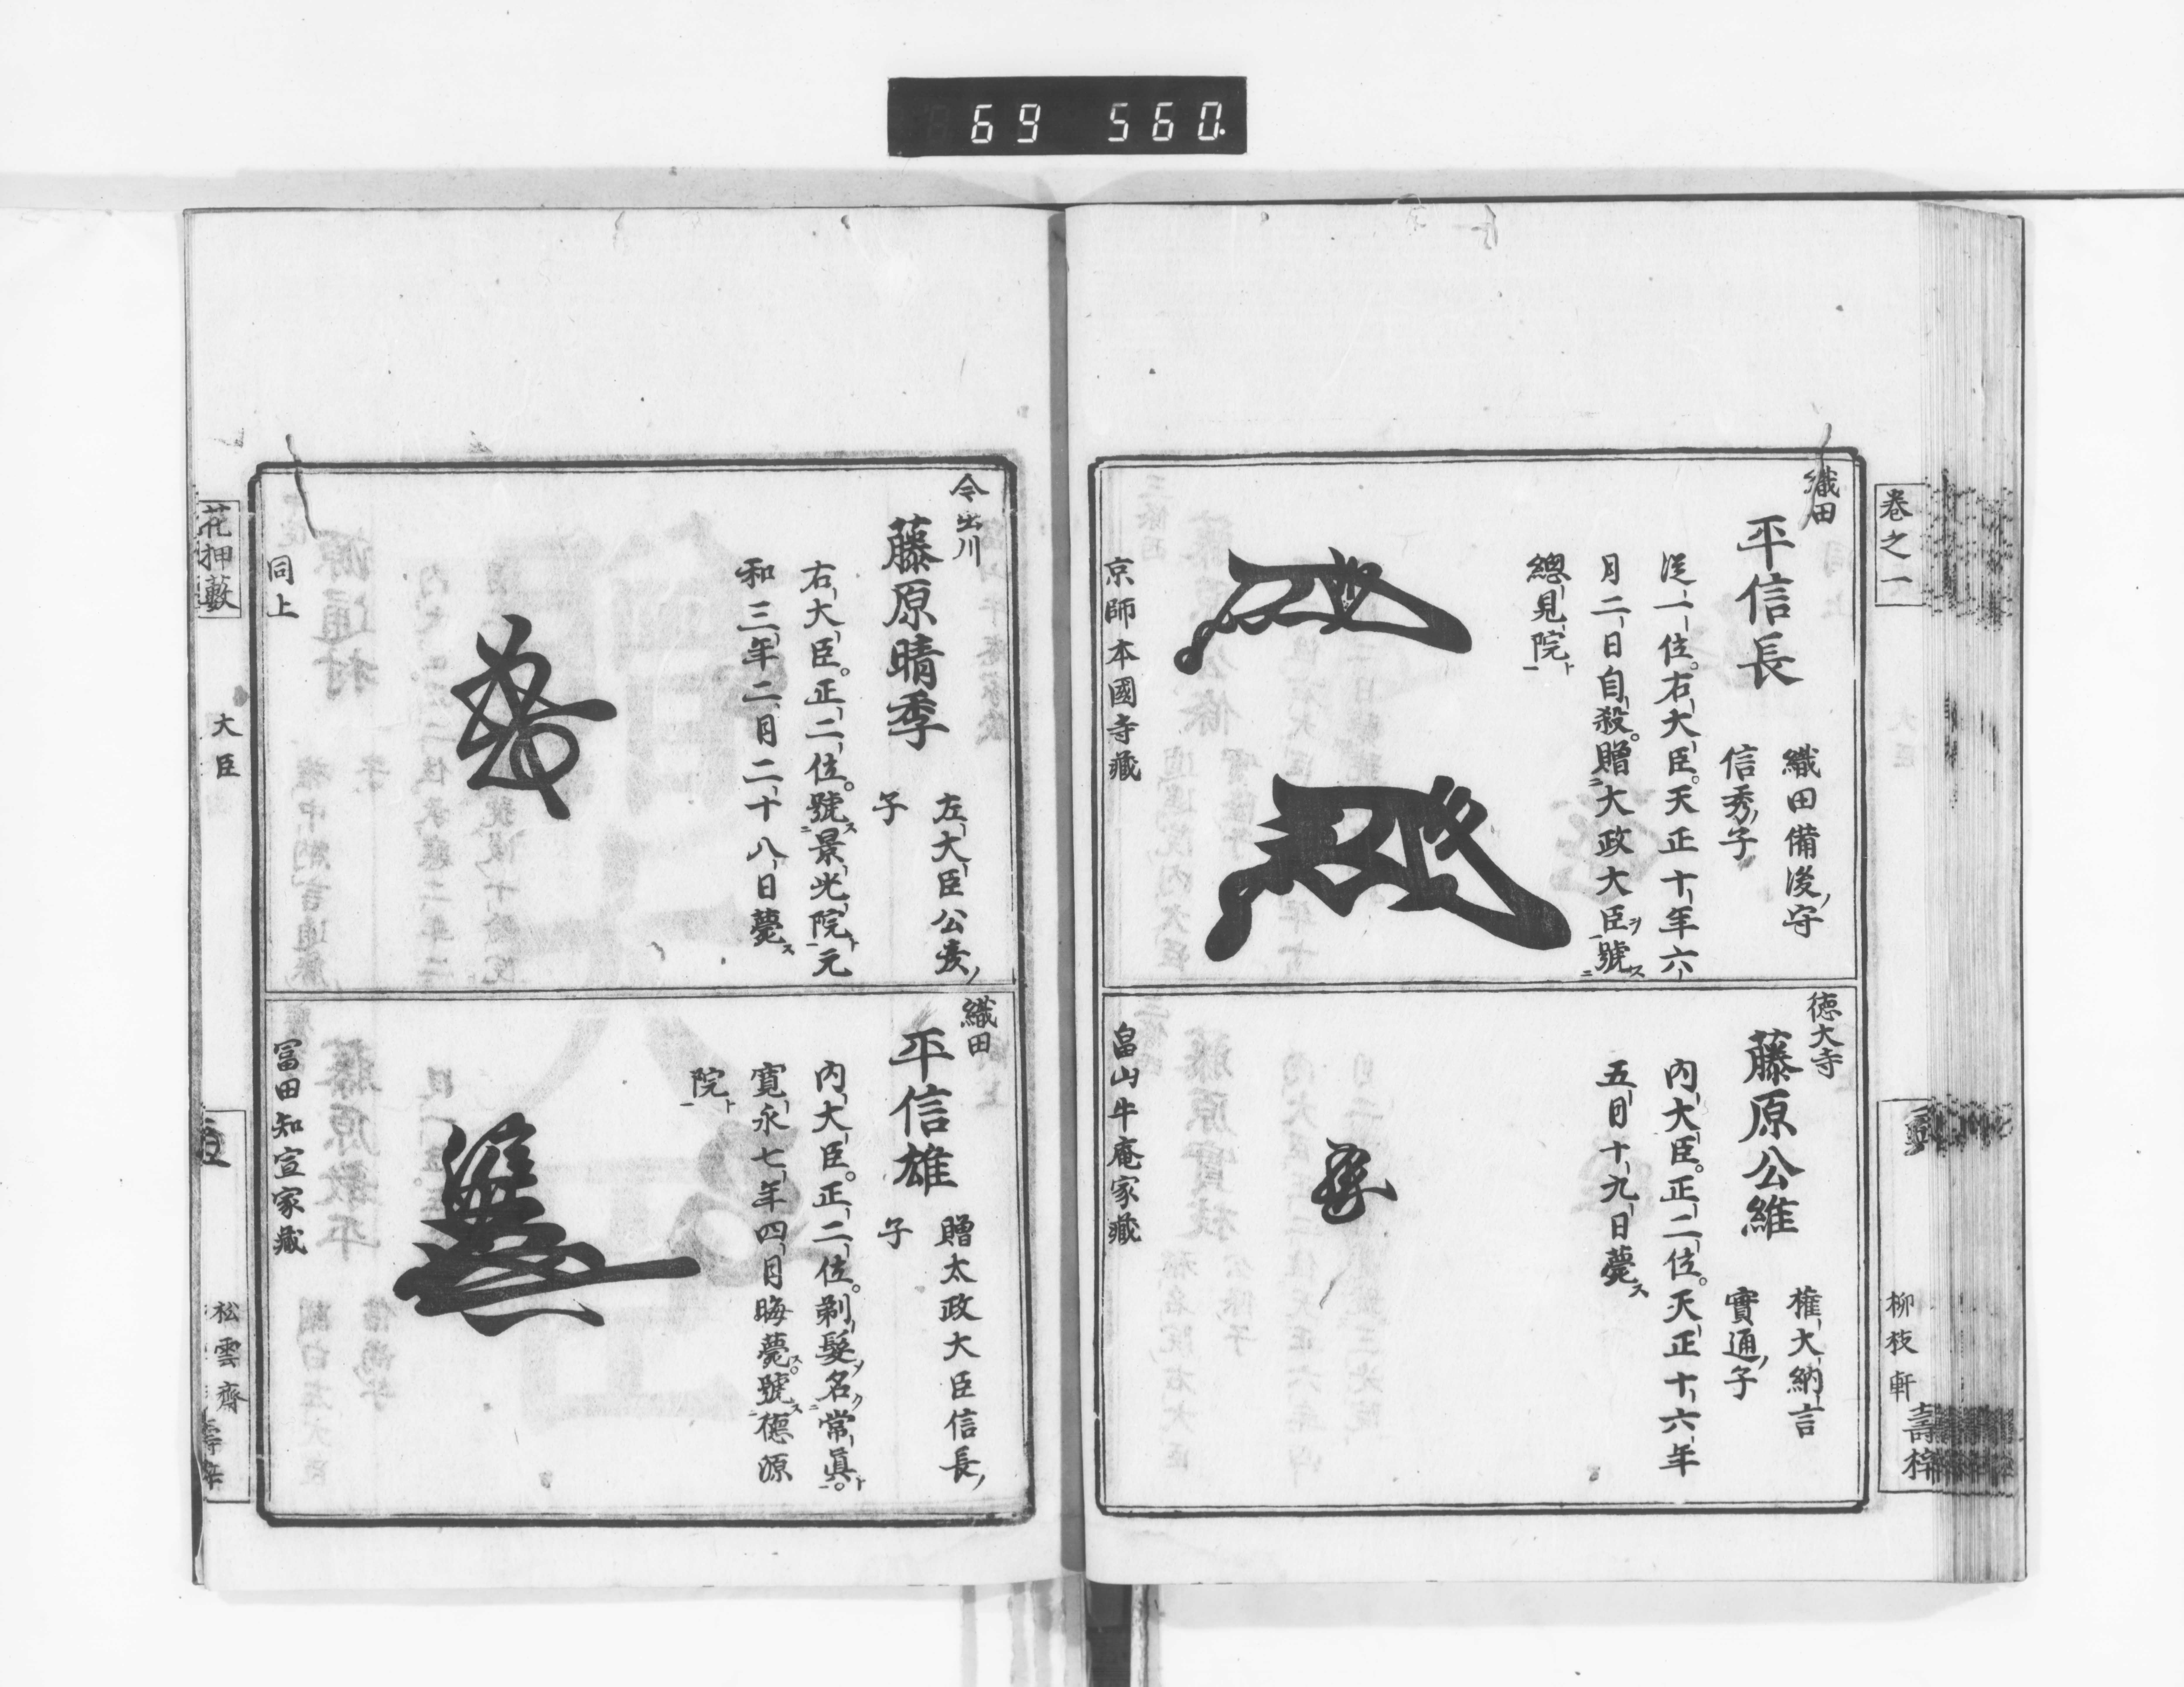 69 560.
卷之一
柳枝軒
壽梓
織田
平信長
織田備後ノ守
信秀ノ子
從一位。右大臣。天正十年六
月二日自殺。贈ニ大政大臣ヲ一號ス二
總見院ト一
京師本國寺藏
德大寺
藤原公維
權大納言
實通ノ子
內大臣。正二位。天正十六年
五月十九日薨ス
畠山牛庵家藏
今出川
藤原晴季
左大臣公彥ノ
子
右大臣。正二位。號ス二景光院ト一元
和三年二月二十八日薨ス
同上
織田
平信雄
贈太政大臣信長ノ
子
內大臣。正二位。剃髮ノ名ク二常眞ト一。
寬永七年四月晦薨ス。號ス二德源
院ト一
冨田知宣家藏
花押藪
大臣
松雲齋
壽梓